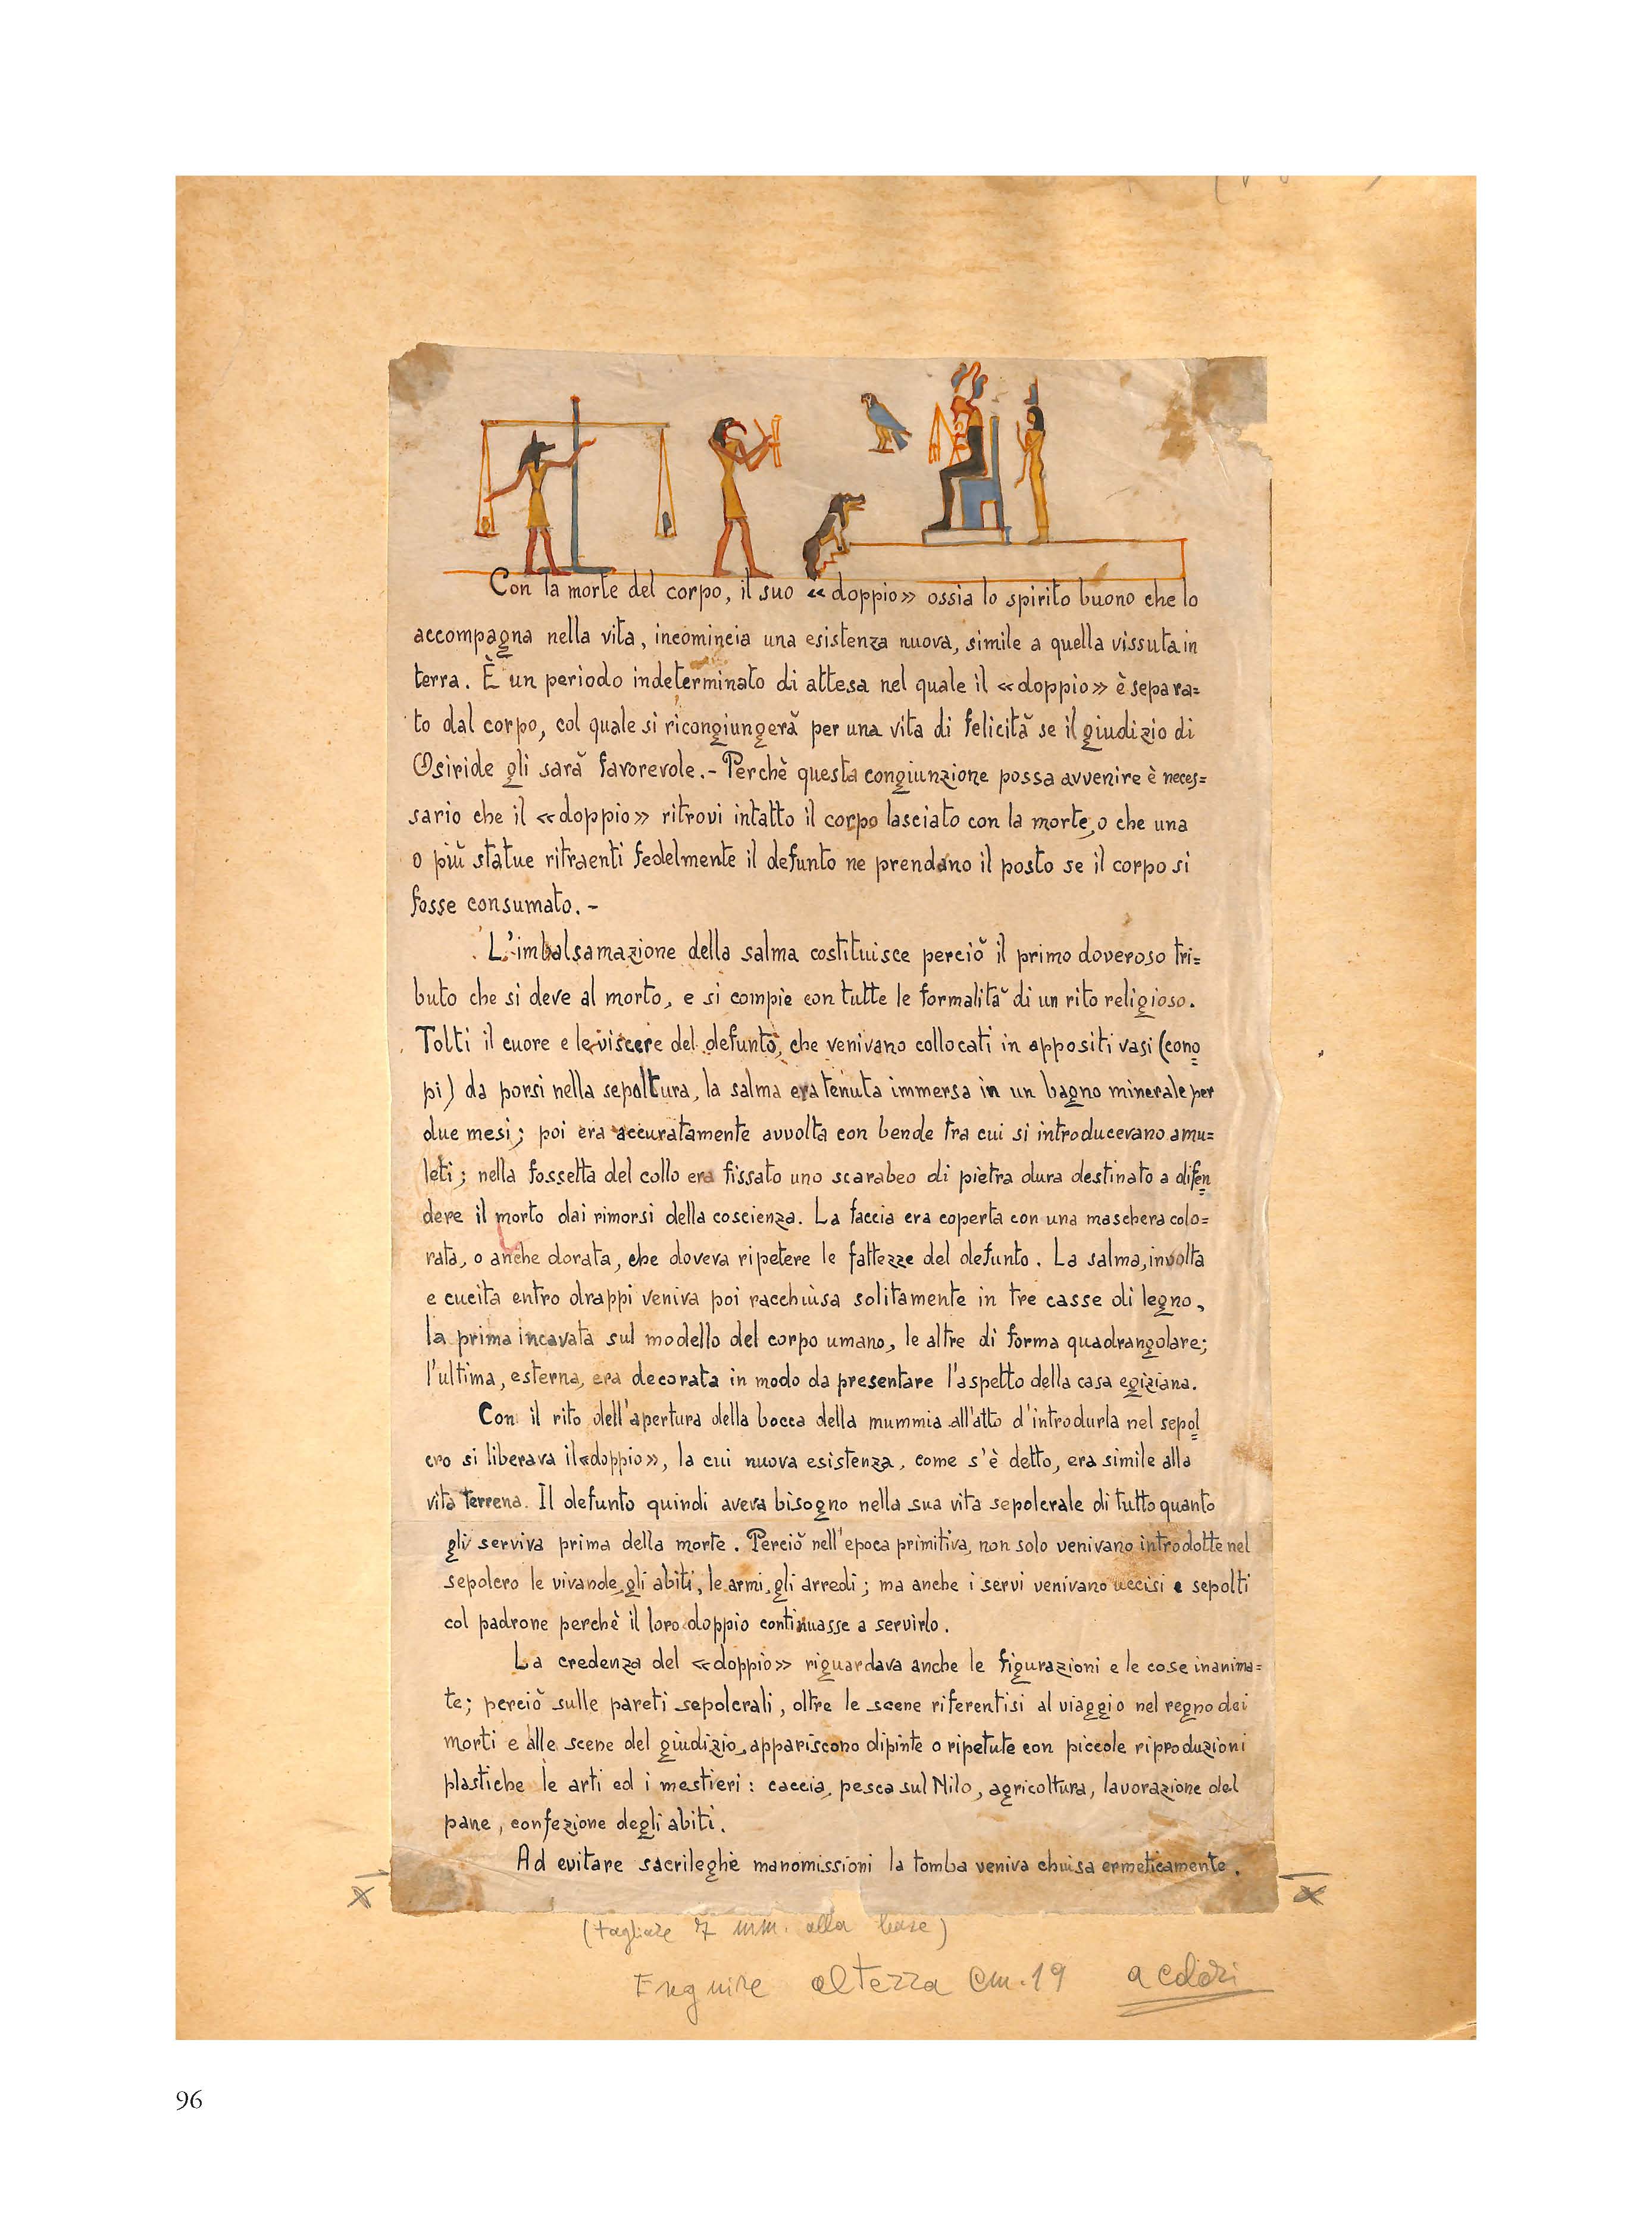 Con la morte del corpo, il suo «doppio» ossia lo spirito buono che lo
accompagna nella vita, incomincia una esistenza nuova, simile a quella vissuta in
terra. È un periodo indeterminato di attesa nel quale il «doppio» è separa=
to dal corpo, col quale si ricongiungerà per una vita di felicità se il giudizio di
Osiride gli sarà favorevole.- Perchè questa congiunzione possa avvenire è neces=
sario che il «doppio» ritrovi intatto il corpo lasciato con la morte, o che una
o più statue ritraenti fedelmente il defunto ne prendano il posto se il corpo si
fosse consumato. -
L'imbalsamazione della salma costituisce perciò il primo doveroso tri=
buto che si deve al morto, e si compie con tutte le formalità di un rito religioso.
Tolti il cuore e le viscere del defunto, che venivano collocati in appositi vasi (cono=
pi) da porsi nella sepoltura, la salma era tenuta immersa in un bagno minerale per
due mesi; poi era accuratamente avvolta con bende tra cui si introducevano amu=
leti; nella fossetta del collo era fissato uno scarabeo di pietra dura destinato a difen=
dere il morto dai rimorsi della coscienza. La faccia era coperta con una maschera colo=
rata, o anche dorata, che doveva ripetere le fattezze del defunto. La salma, involta
e cucita entro drappi veniva poi racchiusa solitamente in tre casse di legno,
la prima incavata sul modello del corpo umano, le altre di forma quadrangolare;
l'ultima, esterna, era decorata in modo da presentare l'aspetto della casa egiziana.
Con il rito dell'apertura della bocca della mummia all'atto d'introdurla nel sepol=
cro si liberava il «doppio», la cui nuova esistenza, come s'è detto, era simile alla
vita terrena. Il defunto quindi aveva bisogno nella sua vita sepolcrale di tutto quanto
gli serviva prima della morte. Perciò nell'epoca primitiva, non solo venivano introdotte nel
sepolcro le vivande, gli abiti, le armi, gli arredi; ma anche i servi venivano uccisi e sepolti
col padrone perchè il loro doppio continuasse a servirlo.
La credenza del «doppio» riguardava anche le figurazioni e le cose inanima=
te; perciò sulle pareti sepolcrali, oltre le scene riferentisi al viaggio nel regno dei
morti e alle scene del giudizio, appariscono dipinte o ripetute con piccole riproduzioni
plastiche le arti ed i mestieri: caccia, pesca sul Nilo, agricoltura, lavorazione del
pane, confezione degli abiti.
Ad evitare sacrileghe manomissioni la tomba veniva chiusa ermeticamente.
(tagliare 7 mm. alla base)
altezza cm. 19 a colori
96